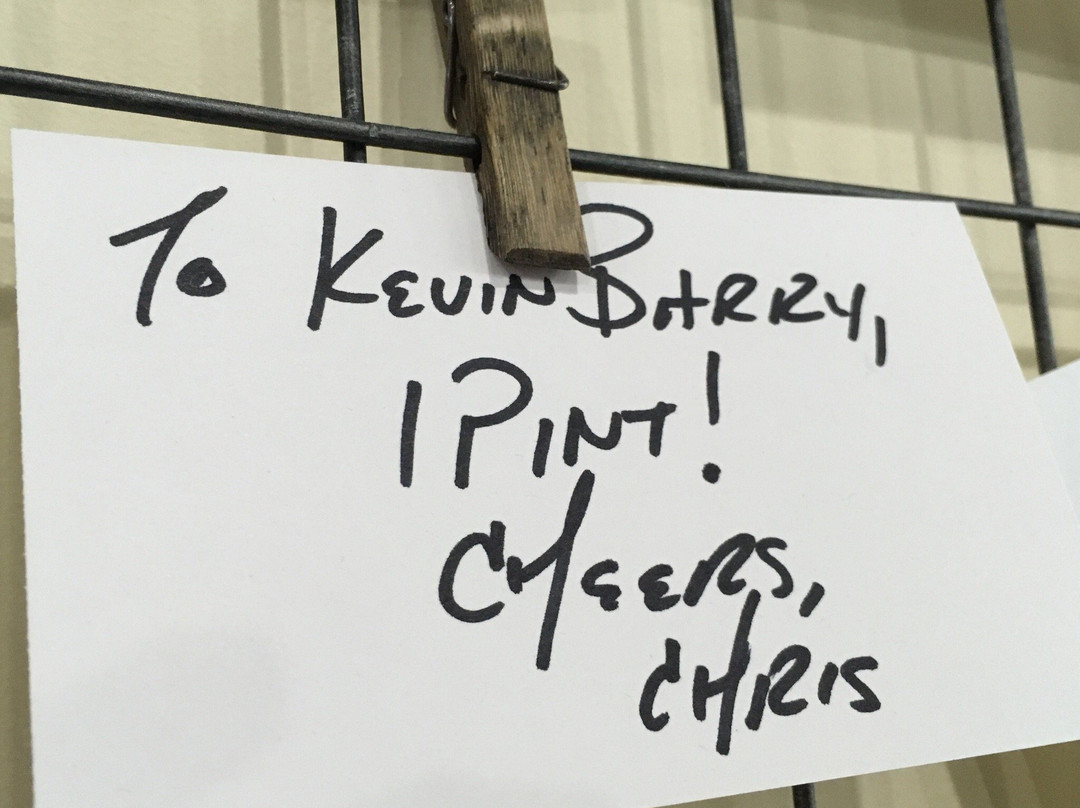 To KEVIN BARRY,
1 PINT!
CHEERS,
CHRIS